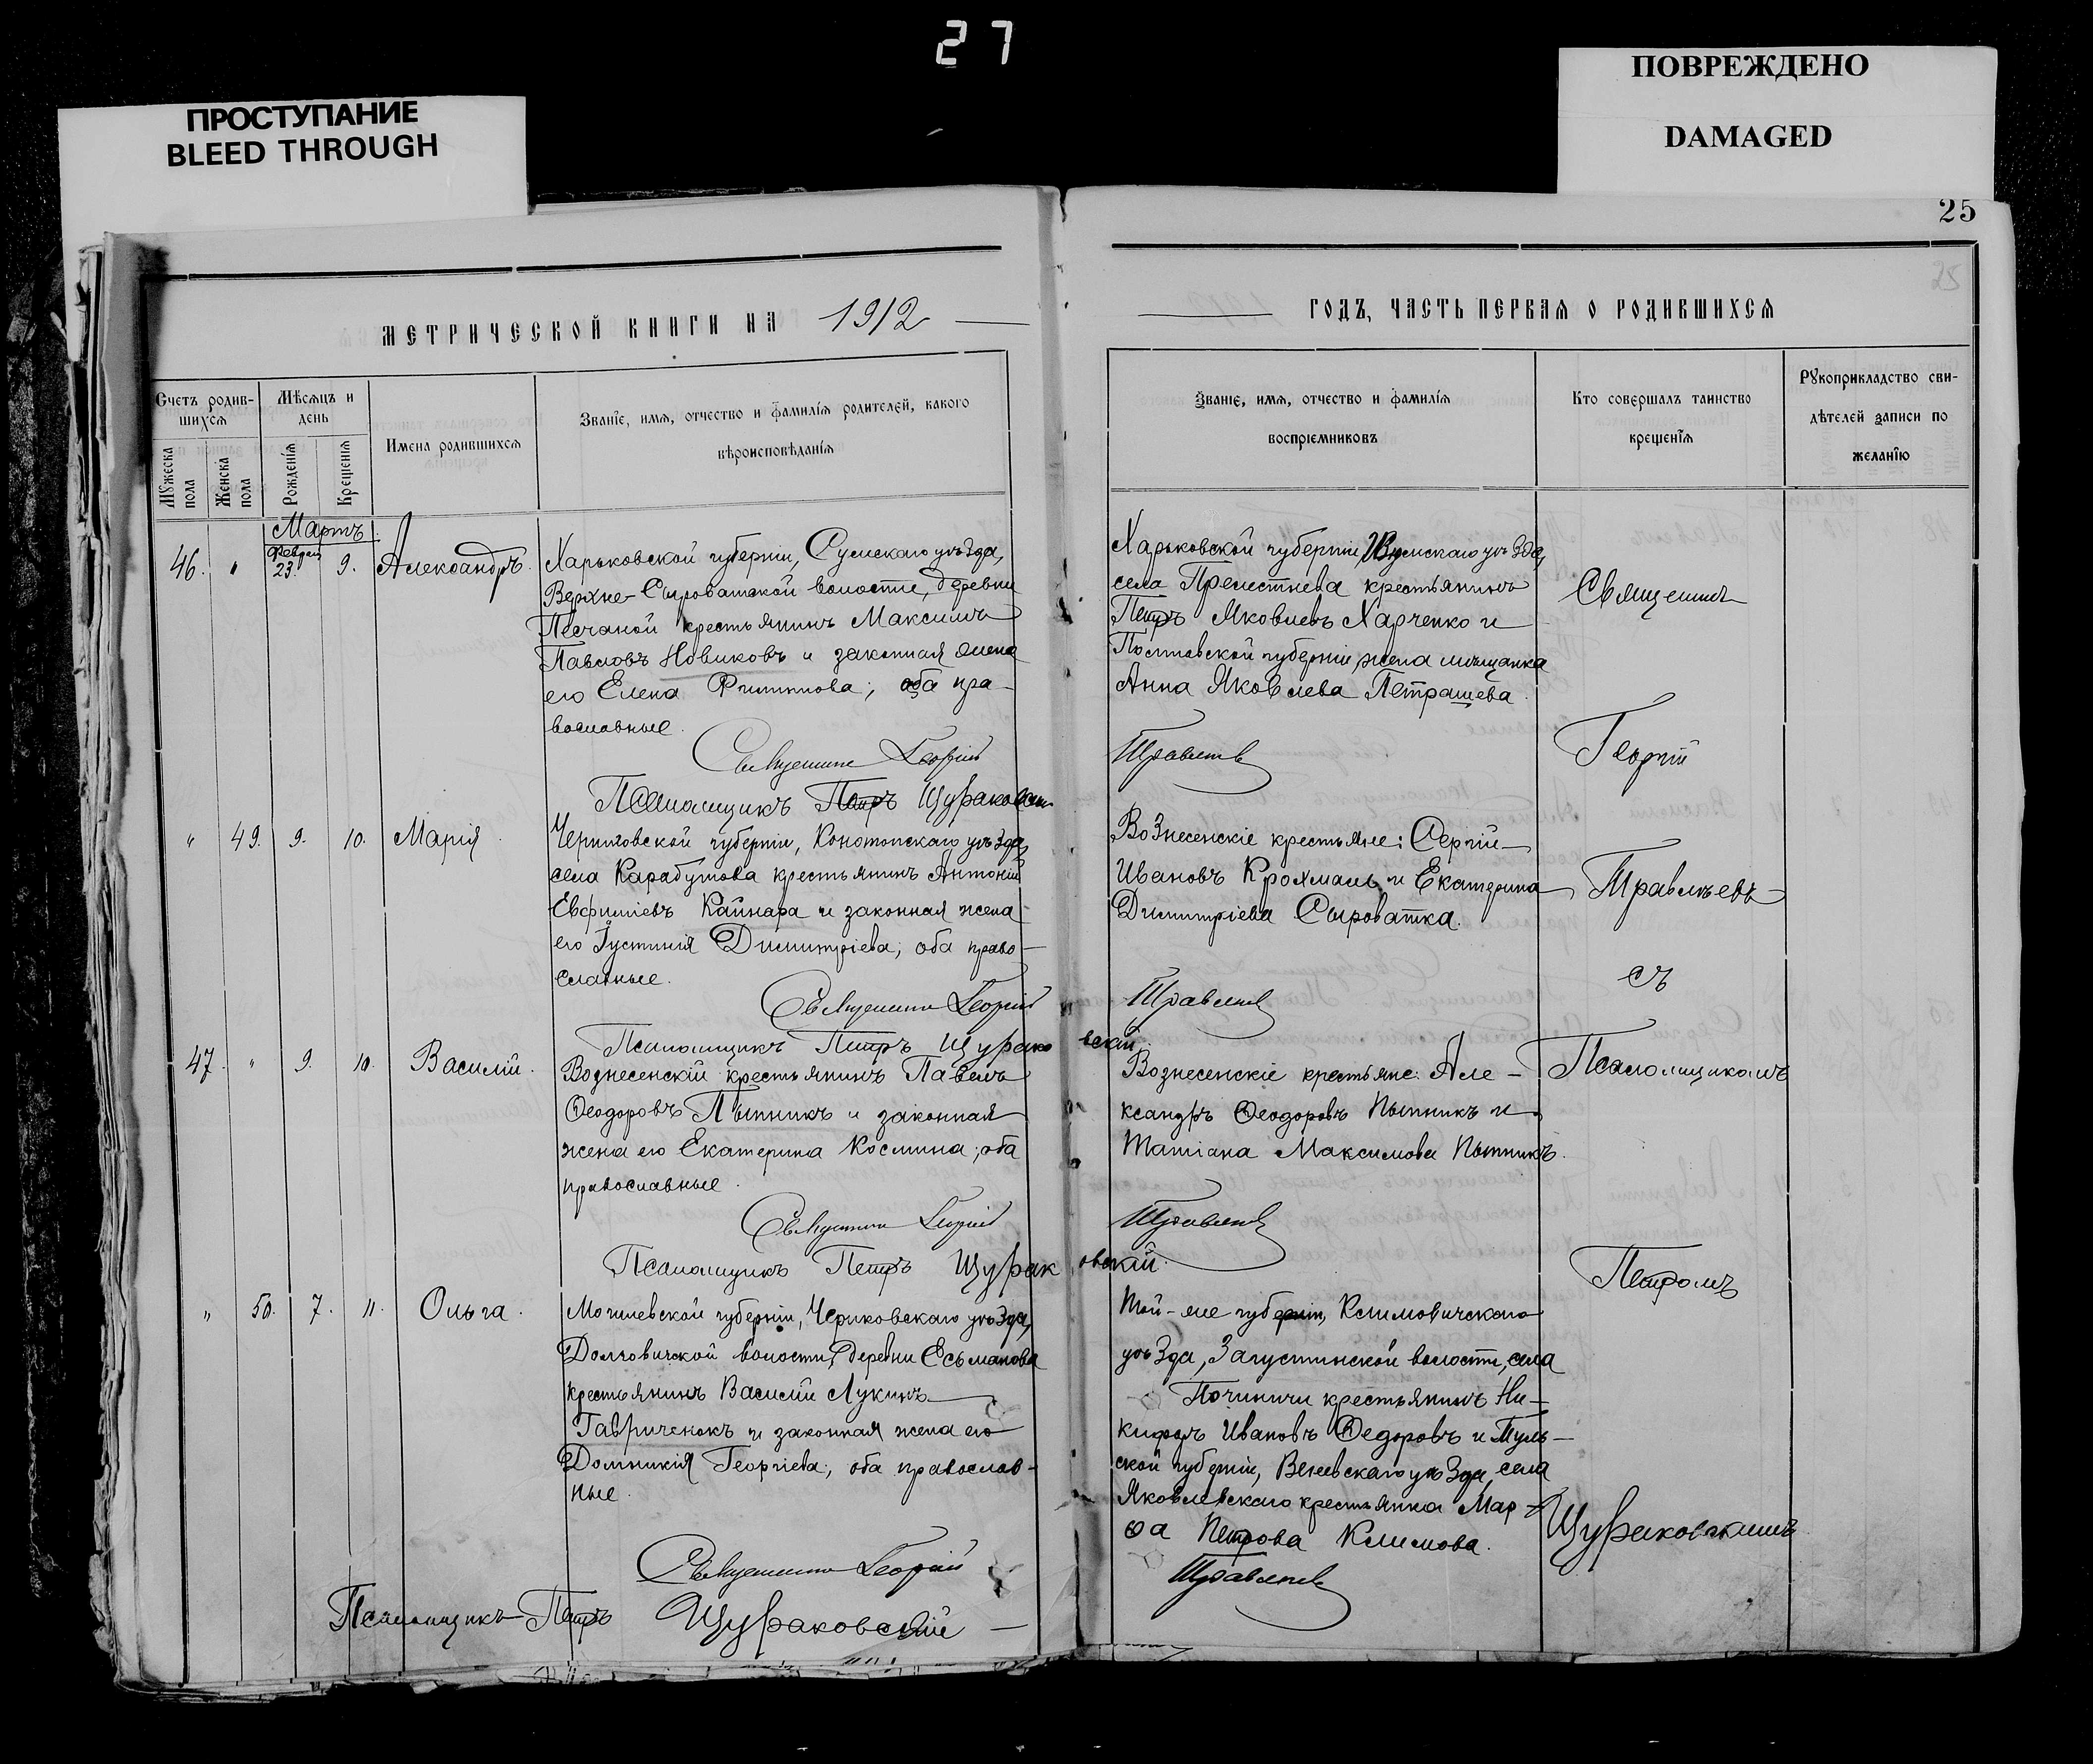 27
ПРОСТУПАНИЕ
BLEED THROUGH
ПОВРЕЖДЕНО
DAMAGED
25
25
МЕТРИЧЕСКОЙ КНИГИ НА 1912
Счетъ родив-
шихся
Мѣсяцъ и
день
Мужеска
пола
Женска
пола
Рожденія
Крещенія
Имена родившихся
Званіе, имя, отчество и фамилія родителей, какого
вѣроисповѣданія
Мартъ
46. " Феврал 23. 9. Александръ.
Харьковской губерніи, Сумскаго уѣзда,
Верхне-Сыроватской волости, деревни
Песчаной крестьянинъ Максимъ
Павловъ Новиковъ и законная жена
его Елена Филиппова; оба пра-
вославные.
Священникъ Георгій
Псаломщикъ Петръ Щураковскій
" 49. 9. 10. Марія.
Черниговской губерніи, Конотопскаго уѣзда,
села Карабутова крестьянинъ Антоній
Евфиміевъ Кайнара и законная жена
его Іустинія Димитріева; оба право-
славные.
Священникъ Георгій
Псаломщикъ Петръ Щурако
47. " 9. 10. Василій.
Вознесенскій крестьянинъ Павелъ
Ѳеодоровъ Пытникъ и законная
жена его Екатерина Космина; оба
православные.
Священникъ Георгій
Псаломщикъ Петръ Щурак
" 50. 7. 11. Ольга.
Могилевской губерніи, Чериковскаго уѣзда,
Долговичской волости, деревни Есьманова
крестьянинъ Василій Лукинъ
Гавриченокъ и законная жена его
Домникія Георгіева; оба православ-
ные.
Священникъ Георгій
Псаломщикъ Петръ Щураковскій
ГОДЪ, ЧАСТЬ ПЕРВАЯ О РОДИВШИХСЯ
Званіе, имя, отчество и фамилія
воспріемниковъ
Кто совершалъ таинство
крещенія
Рукоприкладство сви-
дѣтелей записи по
желанію
Харьковской губерніи, уѣзда,
села крестьянинъ
Петръ Яковлевъ Харченко и
Полтавской губерніи, жена мѣщанка
Анна Яковлева Петрашева.
Травлѣевъ
Вознесенскіе крестьяне: Сергій
Ивановъ Крохмаль и Екатерина
Димитріева Сыроватка.
Травлѣевъ
вскій.
Вознесенскіе крестьяне: Але-
ксандръ Ѳеодоровъ Пытникъ и
Татіана Максимова Пытникъ.
Травлѣевъ
овскій.
Той-же губерніи, Климовичскаго
уѣзда, Загустинской волости, села
Починичи крестьянинъ Ни-
кифоръ Ивановъ Ѳедоровъ и Туль-
ской губерніи, Веневскаго уѣзда, села
Яковлевскаго крестьянка Мар-
ѳа Петрова Климова.
Травлѣевъ
Священникъ
Георгій
Травлѣевъ
съ
Псаломщикомъ
Петромъ
Щураковскимъ